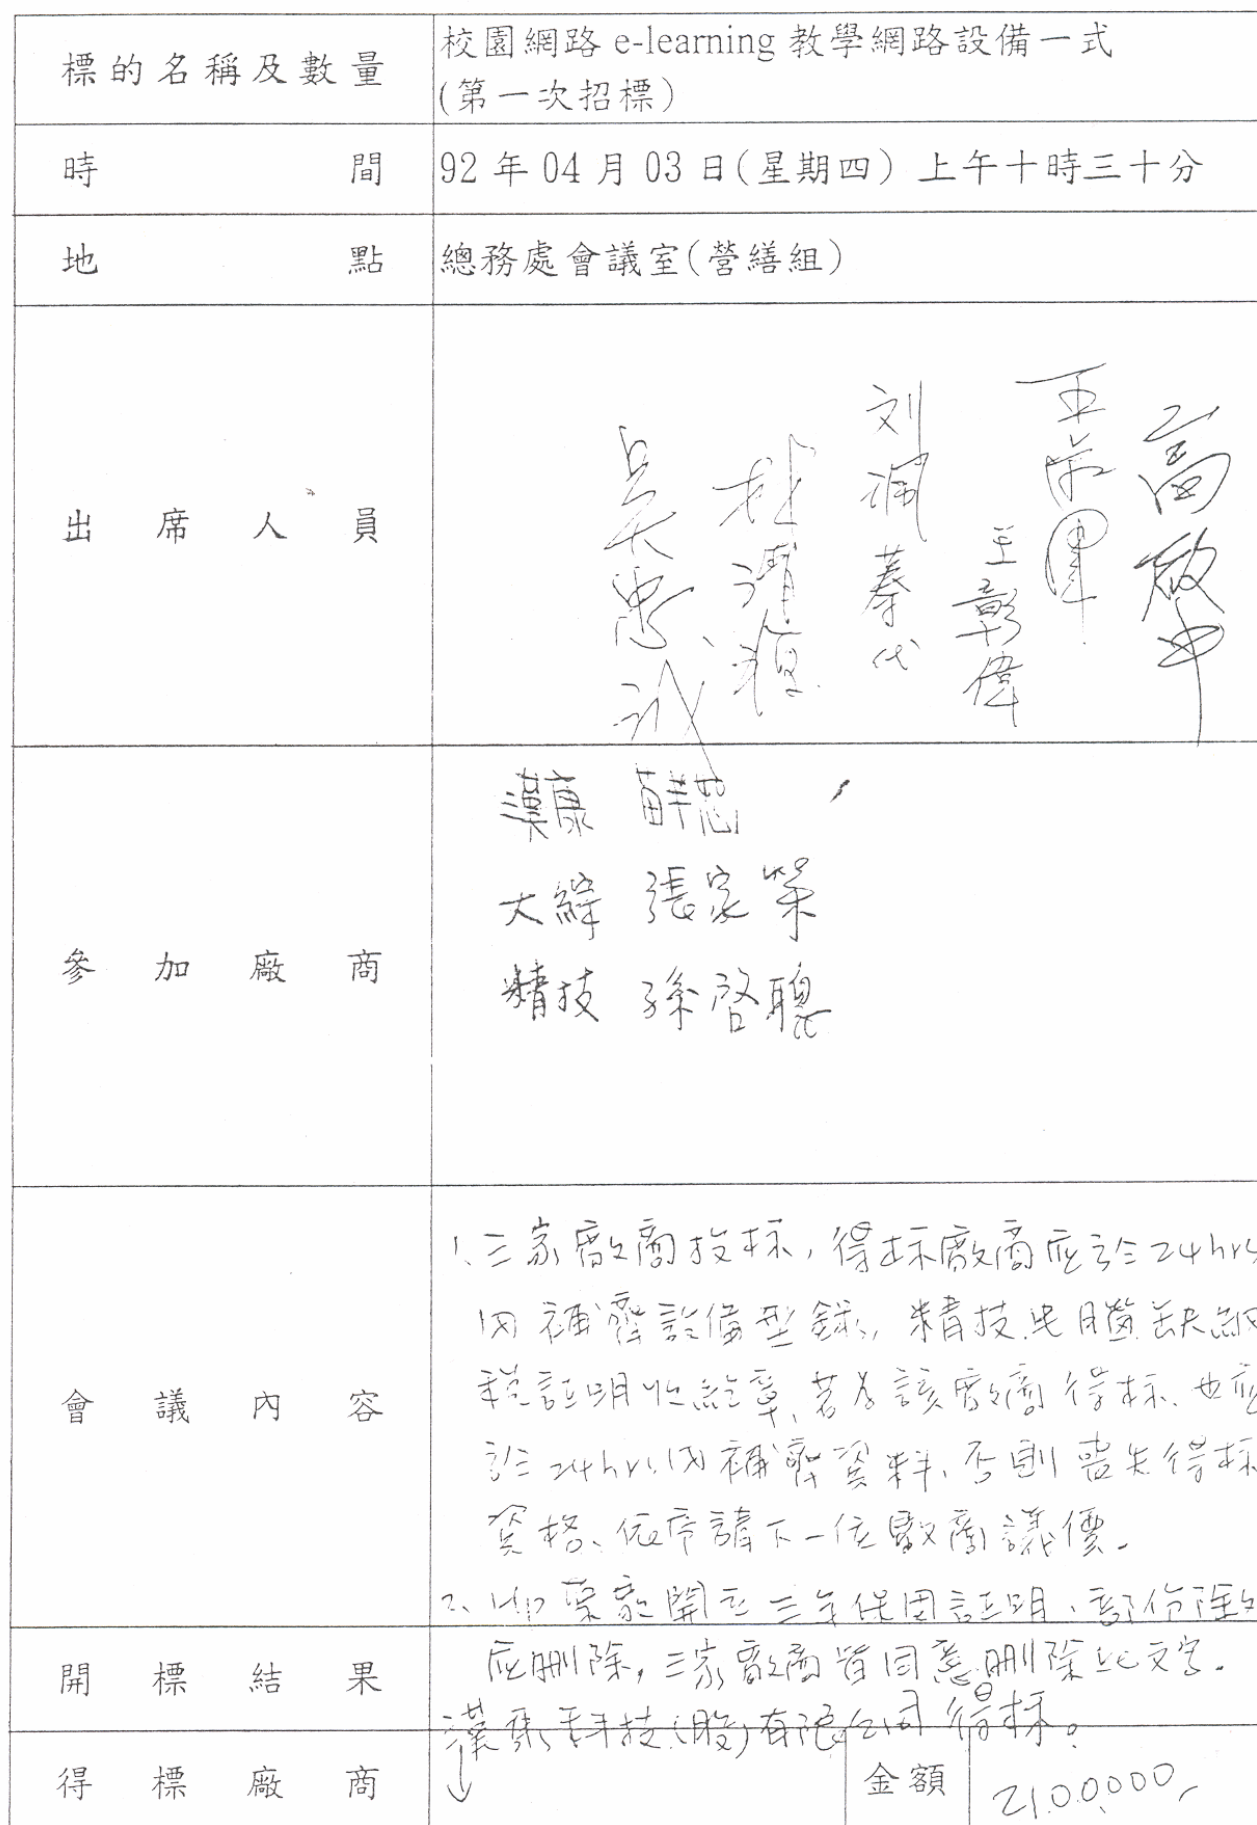 標的名稱及數量
校園網路 e-learning 教學網路設備一式
(第一次招標)
時間
92 年 04 月 03 日(星期四) 上午十時三十分
地點
總務處會議室(營繕組)
出席人員
高啟中
王彰偉
刘佩蓁代
林清
吳忠誠
參加廠商
漢康
大緯 張家榮
精技 孫啓聰
會議內容
1.三家廠商投标,得标廠商应於24hrs
內補齊設備型錄,精技电腦缺納
稅証明 章,若為該廠商得标,也应
於24hrs內補齊資料,否則喪失得标
資格、依序請下一位廠商議價。
2. 原廠開立三年保固証明、部份
开標結果
应刪除,三家廠商皆同意刪除此文字。
漢康科技(股)有限公司得标。
得標廠商
金額
2,100,000,-